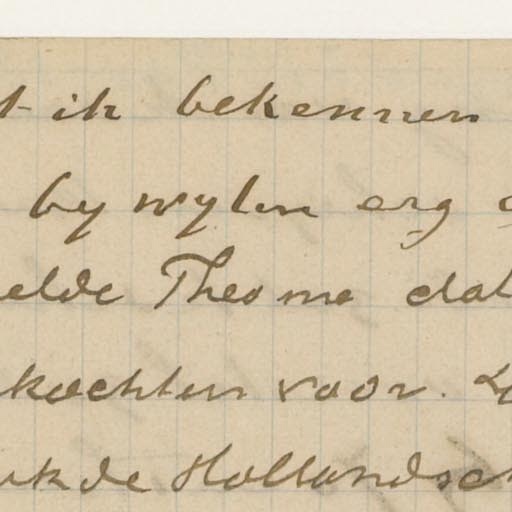 t ik bekennen
by wylen erg
elde Theo me dat
kochten voor.
ukde Hollandsch